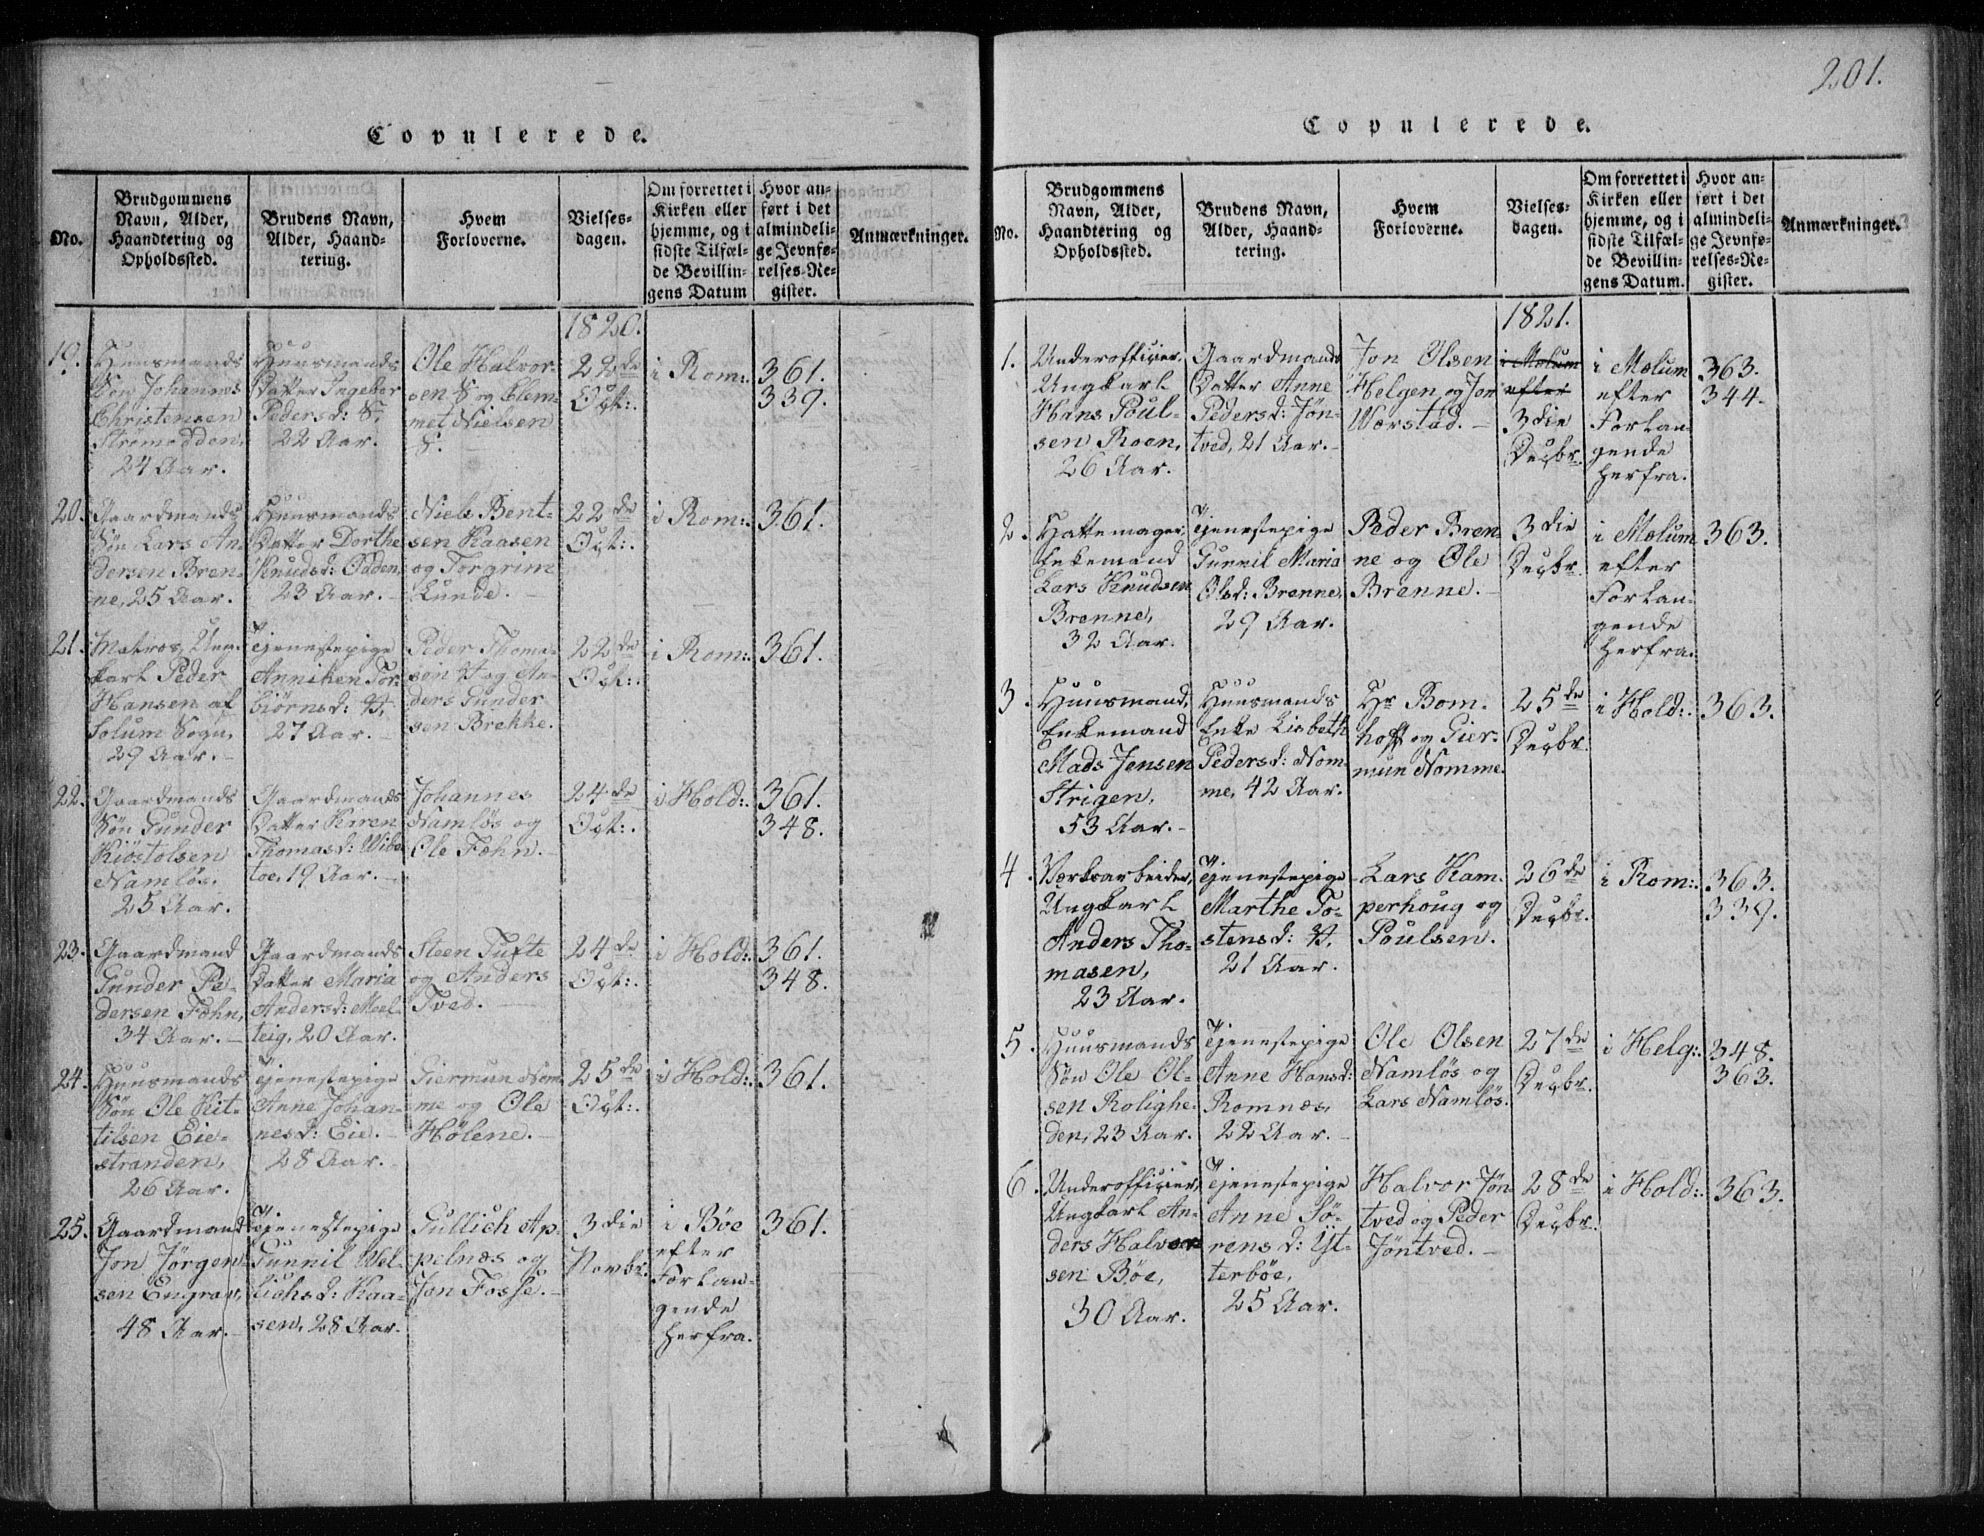 201.
Copulerede.
No.
Brudgommens
Navn, Alder,
Haandtering og
Opholdssted.
Brudens Navn,
Alder, Haand-
tering.
Hvem
Forloverne.
Vielses-
dagen.
Om forrettet i
Kirken eller
hjemme, og i
sidste Tilfæl-
de Bevillin-
gens Datum
Hvor an-
ført i det
almindeli-
ge Jevnfø-
relses-Re-
gister.
Anmærkninger.
1820.
19.
Huusmands
Søn Johannes
Christensen
Stromodden,
24 Aar.
Huusmands
Datter Ingebor
Pedersd: S:,
22 Aar.
Ole Halvor-
sen S og Clem-
met Nielsen
S.
22de
Oct:.
i Rom:.
361.
339.
20.
Gaardmands
Søn Lars An-
dersen Bren-
ne, 25 Aar.
Huusmands
Datter Dorthe
Knudsd: Odden,
23 Aar.
Niels Bent-
sen Kaasen
og Torgrim
Lunde.
22de
Oct:.
i Rom:.
361.
21.
Matros, Ung-
karl Peder
Hansen af
Solum Sogn,
29 Aar.
Tjenestepige
Anniken Tor-
biørnsd: V,
27 Aar.
Peder Thoma-
sen V og An-
ders Gunder
sen Brekke.
22de
Oct:.
i Rom:.
361.
22.
Gaardmands
Søn Gunder
Kiøstolsen
Namløs,
25 Aar.
Gaardmands
Datter Karen
Thomasd: Wibe
toe, 19 Aar.
Johannes
Namløs og
Ole Fæhn.
24de
Oct:.
i Hold:.
361.
348.
23.
Gaardmand
Gunder Pe-
dersen Fæhn,
34 Aar.
Gaardmands
Datter Maria
Andersd: Meel-
teig, 20 Aar.
Steen Tufte
og Anders
Tved.
24de
Oct:.
i Hold:.
361.
348.
24.
Huusmands
Søn Ole Kit-
tilsen Eie-
stranden,
26 Aar.
Tjenestepige
Anne Johan-
nesd: Eie.
28 Aar.
Giermun Nom
me og Ole
Hølene.
25de
Oct:.
i Hold:.
361.
25.
Gaardmand
Jon Jørgen-
sen Engrav,
48 Aar.
Tjenestepige
Gunnil Wel-
lichsd: Kaa-
sen, 28 Aar.
Gullich Ap-
pelnæs og
Jon Fosse.
3die
Novbr.
i Bøe
efter
Forlan-
gende
herfra.
361.
Copulerede.
No.
Brudgommens
Navn, Alder,
Haandtering og
Opholdssted.
Brudens Navn,
Alder, Haand-
tering.
Hvem
Forloverne.
Vielses-
dagen.
Om forrettet i
Kirken eller
hjemme, og i
sidste Tilfæl-
de Bevillin-
gens Datum.
Hvor an-
ført i det
almindeli-
ge Jevnfø-
relses-Re-
gister.
Anmærkninger.
1821.
1.
Underofficier,
Ungkarl
Hans Poul-
sen Roen,
26 Aar.
Gaardmands
Datter Anne
Pedersd: Jøn-
tved, 21 Aar.
Jon Olsen
Helgen og Jon
Wærstad.
i Mælum
efter
3die
Decbr.
i Mælum
efter
Forlan-
gende
herfra.
363.
344.
2.
Hattemager,
Enkemand
Lars Knudsen
Brenne,
32 Aar.
Tjenestepige
Gunnil Maria
Olsd: Brenne,
29 Aar.
Peder Bren-
ne og Ole
Brenne.
3die
Decbr.
i Mælum
efter
Forlan-
gende
herfra.
363.
3.
Huusmand,
Enkemand
Mads Jensen
Strigen,
53 Aar.
Huusmands
Enke Lisbeth
Pedersd: Nom-
me, 42 Aar.
Hr Bom-
hoff og Gier-
mun Nomme.
25de
Decbr.
i Hold:.
363.
4.
Værksarbeider,
Ungkarl
Anders Tho-
masen,
23 Aar.
Tjenestepige
Marthe To-
stensd: V,
21 Aar.
Lars Kam-
perhoug og
Poulsen.
26de
Decbr.
i Rom:.
363.
339.
5.
Huusmands
Søn Ole Ol-
sen Rolighe-
den, 23 Aar.
Tjenestepige
Anne Hansd:
Romnæs,
22 Aar.
Ole Olsen
Namløs og
Lars Namløs.
27de
Decbr.
i Helg:.
348.
363.
6.
Underofficier,
Ungkarl An-
ders Halvor-
sen Bøe,
30 Aar.
Tjenestepige
Anne Sø-
rensd: Yt-
terbøe,
25 Aar.
Halvor Jøn
tved og Peder
Jøntved.
28de
Decbr.
i Hold:.
363.